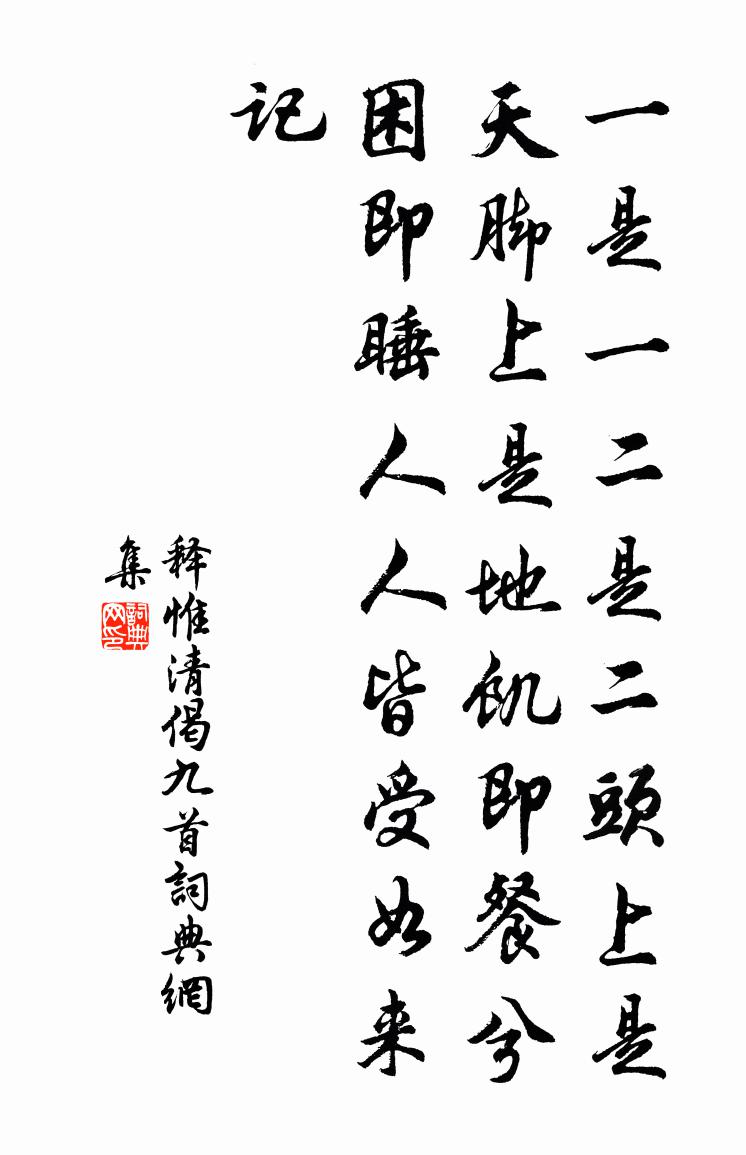 一是一二是二頭上是
天脚上是地飢即餐兮
困即睡人人皆受如来
记
释惟清偈九首詞典網
集
詞典网印